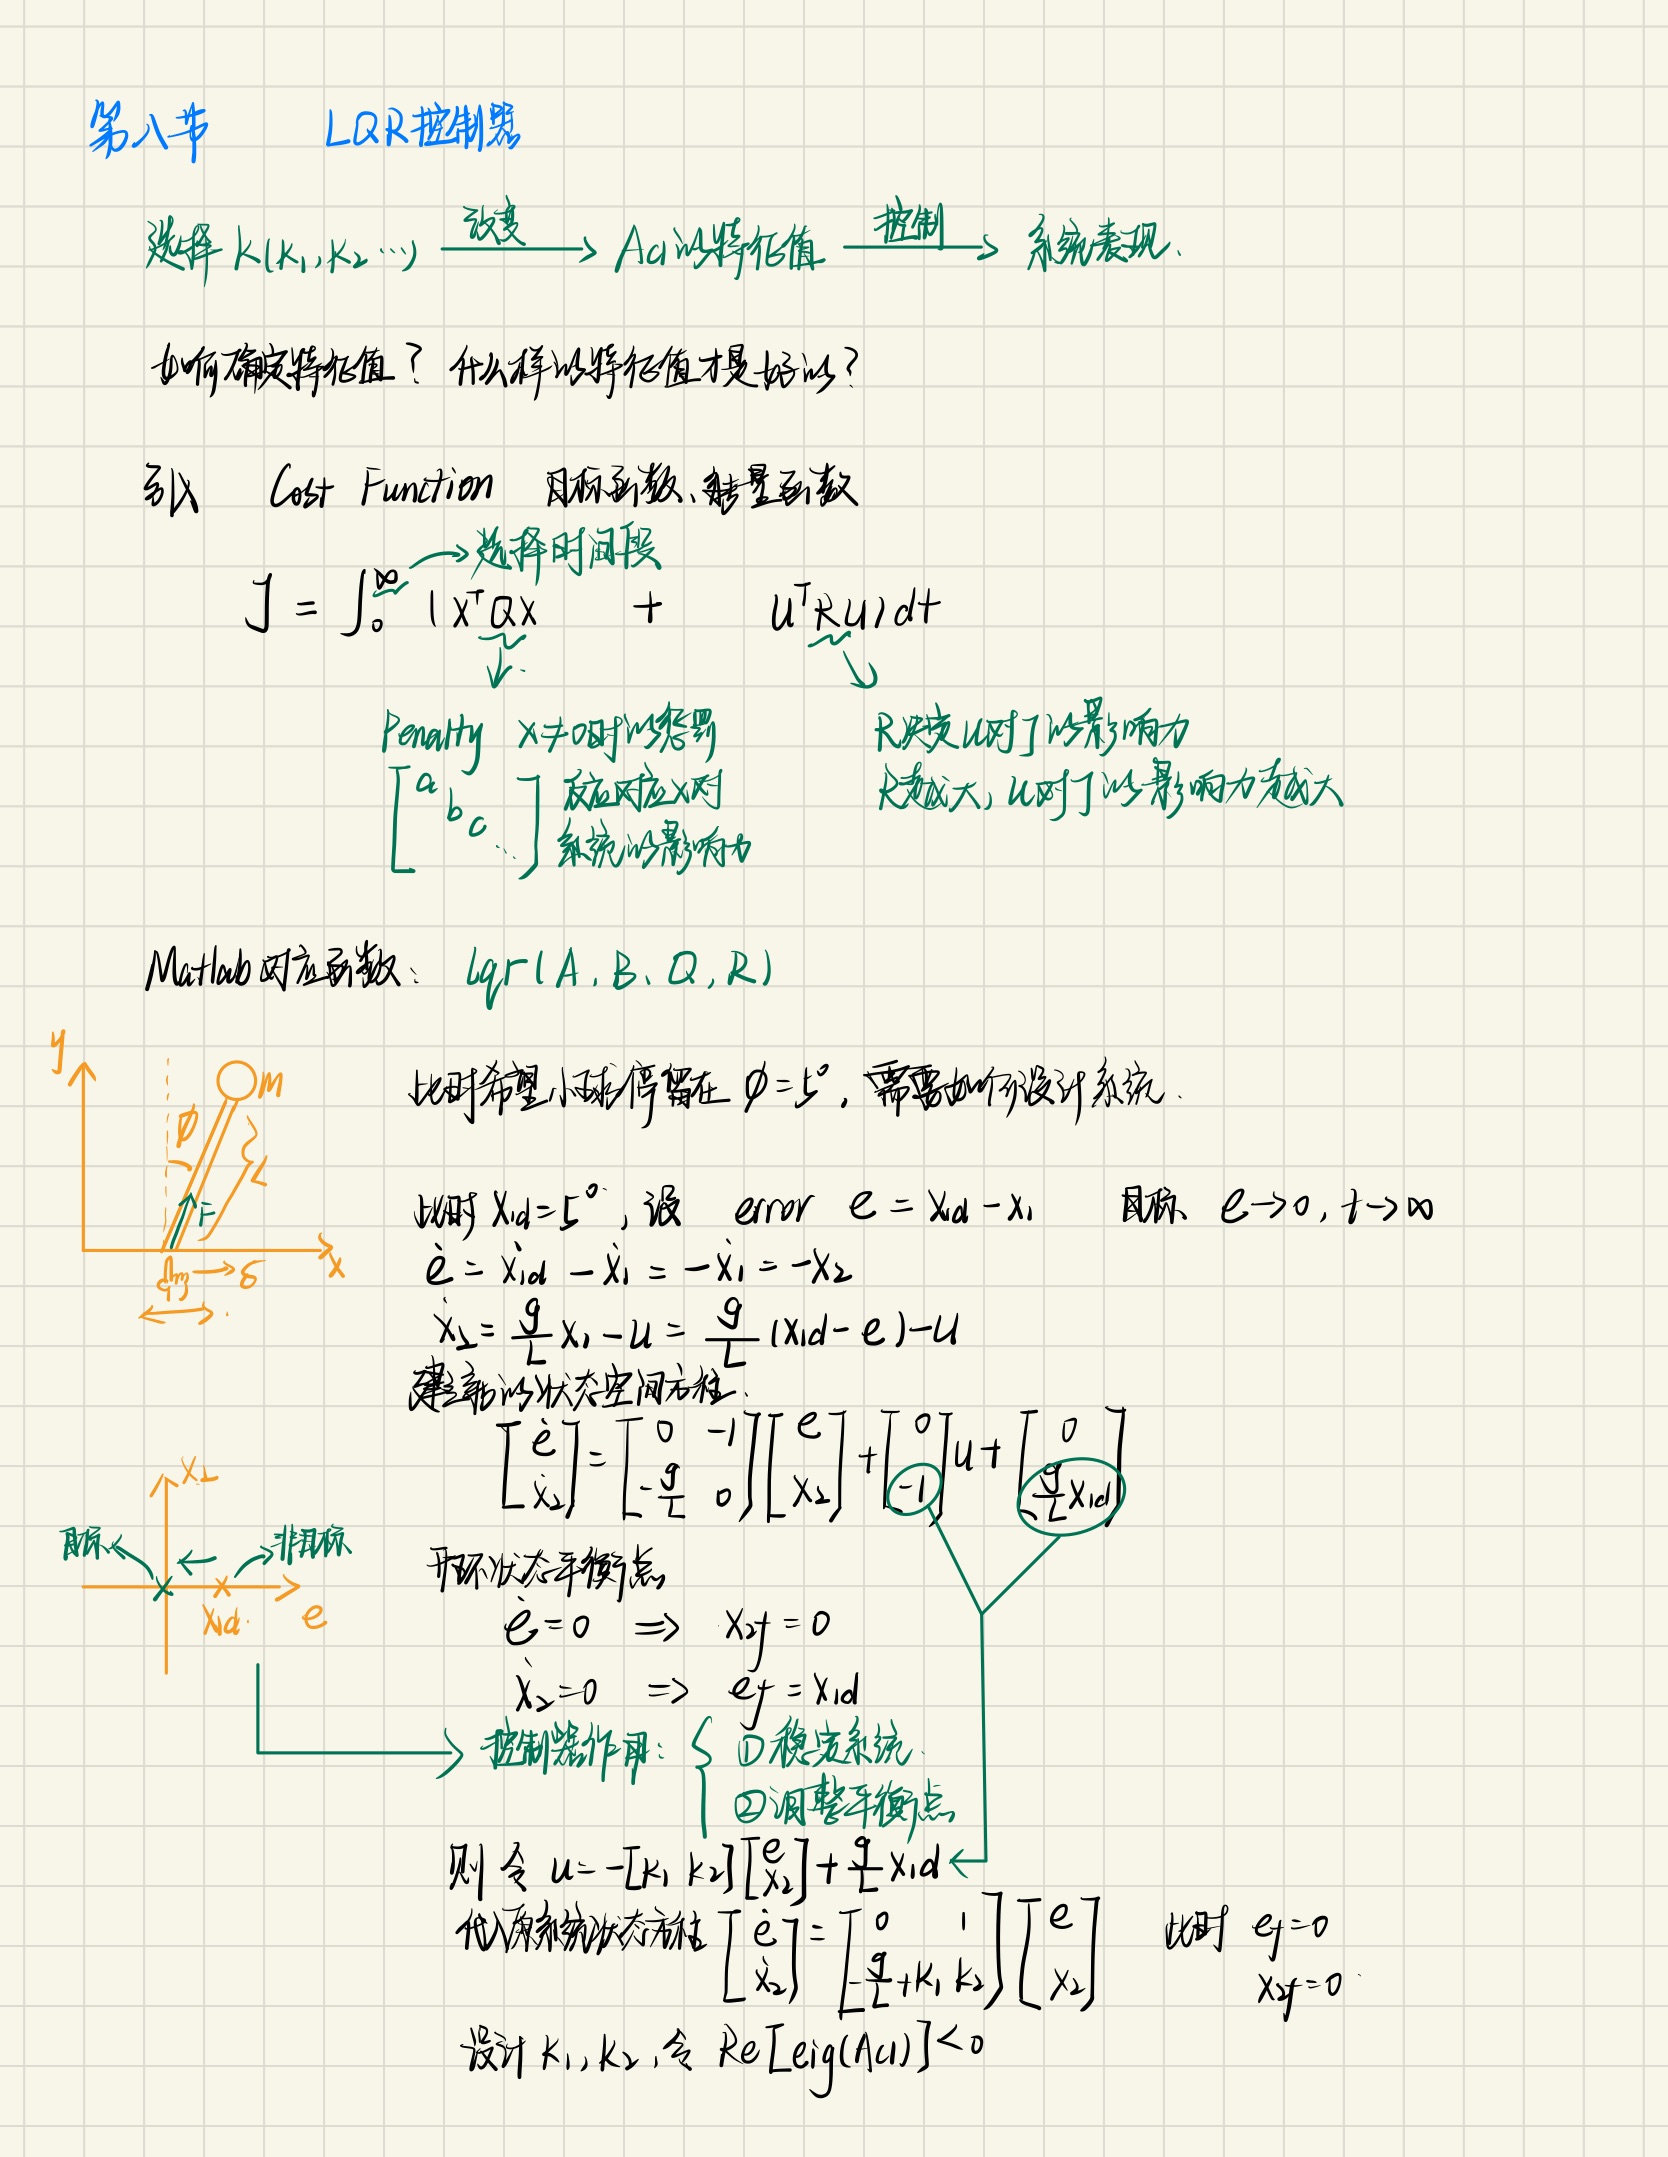 第八节 LQR控制器
选择 K(K₁,K₂…) 改变→ Acl的特征值 控制→ 系统表现.
如何确定特征值? 什么样的特征值才是好的?
引入 Cost Function 目标函数、能量函数
→选择时间段
J = ∫₀^∞ (XᵀQX + UᵀRU)dt
Penalty X≠0时的惩罚
[a b c ⋱] 反应对应X对
系统的影响力
R决定U对J的影响力
R越大, U对J的影响力越大
Matlab对应函数: Lqr(A, B, Q, R)
y
m
φ
L
F
x
→δ
此时希望小球停留在 φ=5°, 需要如何设计系统.
此时 X₁d=5°, 设 error e = X₁d - X₁ 目标 e→0, t→∞
ė = Ẋ₁d - Ẋ₁ = -Ẋ₁ = -X₂
Ẋ₂ = g/L X₁ - U = g/L (X₁d - e) - U
建立新的状态空间方程.
[ė; Ẋ₂] = [0 -1; -g/L 0][e; X₂] + [0; -1]U + [0; g/L X₁d]
X₂
目标
非目标
X₁d
e
开环状态平衡点
ė=0 ⇒ X₂f=0
Ẋ₂=0 ⇒ ef=X₁d
控制器作用: { ①稳定系统.
②调整平衡点
则 令 U=-[K₁ K₂][e; X₂] + g/L X₁d
代入原系统状态方程 [ė; Ẋ₂] = [0 1; -g/L+K₁ K₂][e; X₂] 此时 ef=0
X₂f=0
设计 K₁, K₂, 令 Re[eig(Acl)]<0